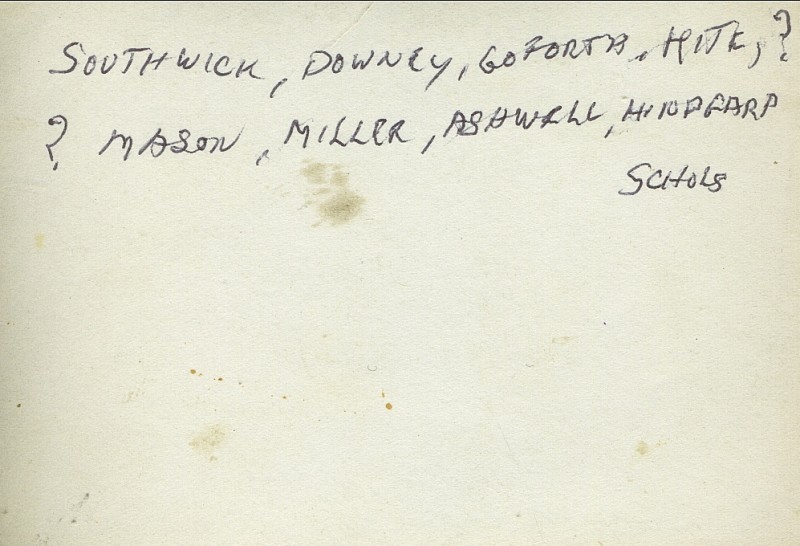 SOUTHWICK, DOWNEY, GOFORTH, HITE, ?
? MASON, MILLER, ASHWELL,
SCHOLS